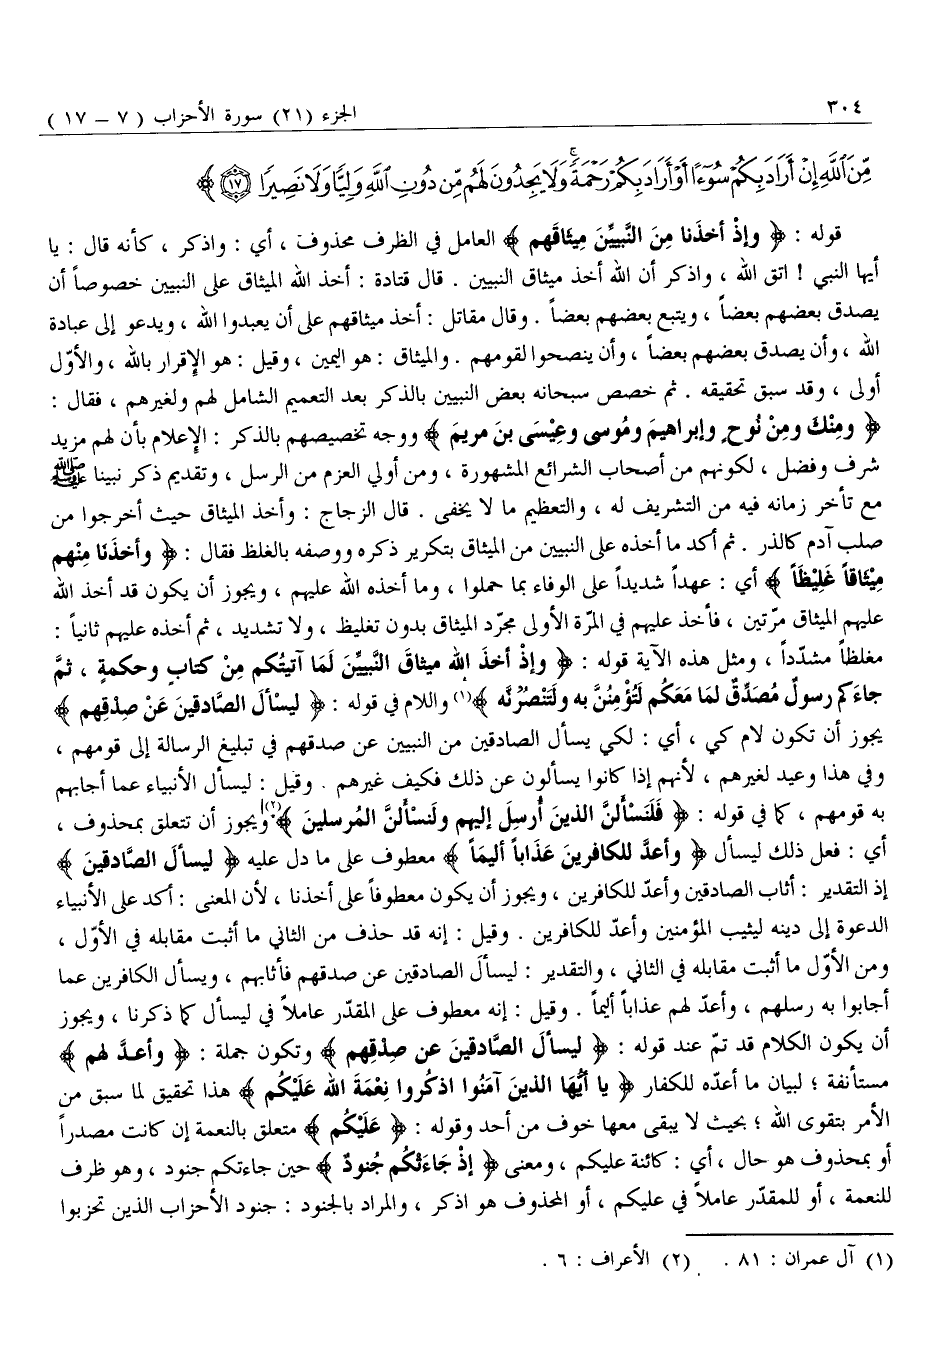 ٣٠٤ الجزء (٢١) سورة الأحزاب ( ٧ – ١٧ )
مِّنَ ٱللَّهِ إِنْ أَرَادَ بِكُمْ سُوٓءًا أَوْ أَرَادَ بِكُمْ رَحْمَةً ۚ وَلَا يَجِدُونَ لَهُم مِّن دُونِ ٱللَّهِ وَلِيًّا وَلَا نَصِيرًا ١٧ ﴾
قوله : ﴿ وإذْ أخذَنا مِنَ النَّبيِّنَ مِيثاقَهم ﴾ العامل في الظرف محذوف ، أي : واذكر ، كأنه قال : يا
أيها النبي ! اتق الله ، واذكر أن الله أخذ ميثاق النبيين . قال قتادة : أخذ الله الميثاق على النبيين خصوصاً أن
يصدق بعضهم بعضاً ، ويتبع بعضهم بعضاً . وقال مقاتل : أخذ ميثاقهم على أن يعبدوا الله ، ويدعو إلى عبادة
الله ، وأن يصدق بعضهم بعضاً ، وأن ينصحوا لقومهم . والميثاق : هو اليمين ، وقيل : هو الإقرار بالله ، والأوّل
أولى ، وقد سبق تحقيقه . ثم خصص سبحانه بعض النبيين بالذكر بعد التعميم الشامل لهم ولغيرهم ، فقال :
﴿ ومِنْكَ ومِنْ نُوحٍ وإبراهيمَ ومُوسى وعِيْسَى بنَ مريمَ ﴾ ووجه تخصيصهم بالذكر : الإعلام بأن لهم مزيد
شرف وفضل ، لكونهم من أصحاب الشرائع المشهورة ، ومن أولي العزم من الرسل ، وتقديم ذكر نبينا ﷺ
مع تأخر زمانه فيه من التشريف له ، والتعظيم ما لا يخفى . قال الزجاج : وأخذ الميثاق حيث أخرجوا من
صلب آدم كالذر . ثم أكد ما أخذه على النبيين من الميثاق بتكرير ذكره ووصفه بالغلظ فقال : ﴿ وأخذَنَا مِنْهم
مِيْثاقاً غَلِيْظَاً ﴾ أي : عهداً شديداً على الوفاء بما حملوا ، وما أخذه الله عليهم ، ويجوز أن يكون قد أخذ الله
عليهم الميثاق مرّتين ، فأخذ عليهم في المرّة الأولى مجرّد الميثاق بدون تغليظ ، ولا تشديد ، ثم أخذه عليهم ثانياً :
مغلظاً مشدّداً ، ومثل هذه الآية قوله : ﴿ وإذْ أخذَ الله ميثاقَ النَّبيِّنَ لَمَا آتيتُكم مِنْ كتابٍ وحكمةٍ ، ثمَّ
جاءَكم رسولٌ مُصَدِّقٌ لمَا مَعَكُم لَتُؤْمنُنَّ به ولَتَنْصرُنَّه ﴾(١) واللام في قوله : ﴿ ليَسأَلَ الصَّادقينَ عَنْ صِدْقِهم ﴾
يجوز أن تكون لام كي ، أي : لكي يسأل الصادقين من النبيين عن صدقهم في تبليغ الرسالة إلى قومهم ،
وفي هذا وعيد لغيرهم ، لأنهم إذا كانوا يسألون عن ذلك فكيف غيرهم . وقيل : ليسأل الأنبياء عما أجابهم
به قومهم ، كما في قوله : ﴿ فَلَنَسْألنَّ الذينَ أُرسِلَ إليهم ولَنسْألنَّ المُرسلينَ ﴾(٢) ويجوز أن تتعلق بمحذوف ،
أي : فعل ذلك ليسأل ﴿ وأعدَّ للكافرينَ عَذَاباً أليمَاً ﴾ معطوف على ما دل عليه ﴿ ليسألَ الصَّادقينَ ﴾
إذ التقدير : أثاب الصادقين وأعدّ للكافرين ، ويجوز أن يكون معطوفاً على أخذنا ، لأن المعنى : أكد على الأنبياء
الدعوة إلى دينه ليثيب المؤمنين وأعدّ للكافرين . وقيل : إنه قد حذف من الثاني ما أثبت مقابله في الأوّل ،
ومن الأوّل ما أثبت مقابله في الثاني ، والتقدير : ليسألَ الصادقين عن صدقهم فأثابهم ، ويسأل الكافرين عما
أجابوا به رسلهم ، وأعدّ لهم عذاباً أليماً . وقيل : إنه معطوف على المقدّر عاملاً في ليسأل كما ذكرنا ، ويجوز
أن يكون الكلام قد تمّ عند قوله : ﴿ ليسألَ الصَّادقينَ عن صِدْقِهم ﴾ وتكون جملة : ﴿ وأعدَّ لهم ﴾
مستأنفة ؛ لبيان ما أعدّه للكفار ﴿ يا أيُّهَا الذينَ آمَنُوا اذكُروا نِعْمَةَ الله عَلَيْكُم ﴾ هذا تحقيق لما سبق من
الأمر بتقوى الله ؛ بحيث لا يبقى معها خوف من أحد وقوله : ﴿ عَلَيْكُم ﴾ متعلق بالنعمة إن كانت مصدراً
أو بمحذوف هو حال ، أي : كائنة عليكم ، ومعنى ﴿ إذْ جَاءَتْكُم جُنودٌ ﴾ حين جاءتكم جنود ، وهو ظرف
للنعمة ، أو للمقدّر عاملاً في عليكم ، أو المحذوف هو اذكر ، والمراد بالجنود : جنود الأحزاب الذين تحزبوا
(١) آل عمران : ٨١ . (٢) الأعراف : ٦ .